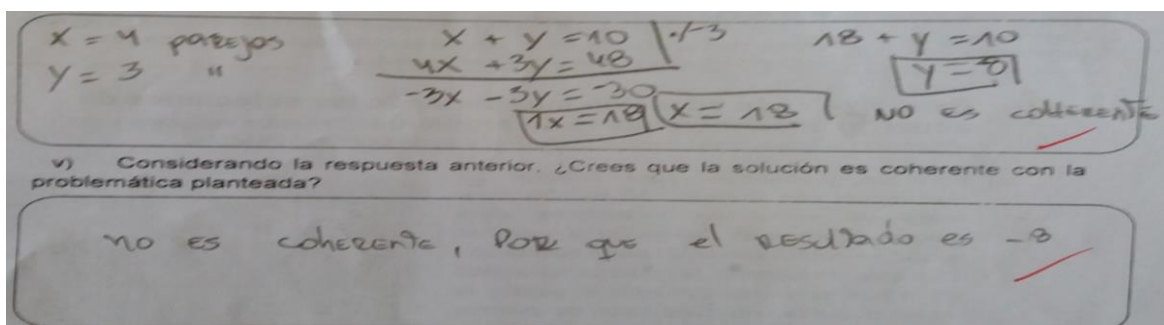 x = 4 parejos
y = 3 "
x + y = 10 | ·/-3
4x + 3y = 48
-3x - 3y = -30
1x = 18 x = 18
18 + y = 10
y = 8
NO es coherente
v) Considerando la respuesta anterior. ¿Crees que la solución es coherente con la
problemática planteada?
no es coherente, Por que el Resultado es -8